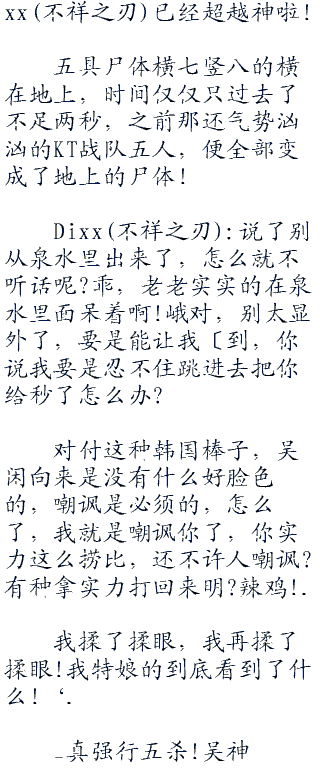 xx(不祥之刃)已经超越神啦!
五具尸体横七竖八的横
在地上，时间仅仅只过去了
不足两秒，之前那还气势汹
汹的KT战队五人，便全部变
成了地上的尸体!
Dixx(不祥之刃):说了别
从泉水里出来了，怎么就不
听话呢?乖，老老实实的在泉
水里面呆着啊!峨对，别太显
外了，要是能让我〔到，你
说我要是忍不住跳进去把你
给秒了怎么办?
对付这种韩国棒子，吴
闲向来是没有什么好脸色
的，嘲讽是必须的，怎么
了，我就是嘲讽你了，你实
力这么捞比，还不许人嘲讽?
有种拿实力打回来明?辣鸡!.
我揉了揉眼，我再揉了
揉眼!我特娘的到底看到了什
么! ‘.
_真强行五杀!吴神